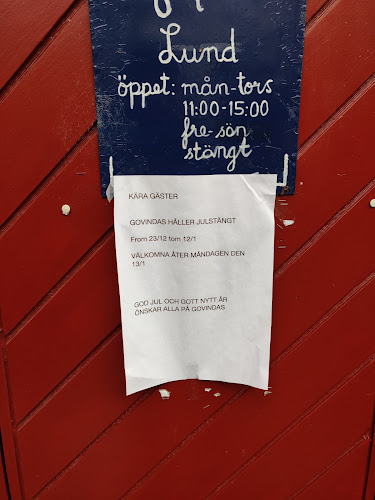 Lund
öppet: mån-tors
11:00-15:00
fre-sön
stängt
KÄRA GÄSTER
GOVINDAS HÅLLER JULSTÄNGT
From 23/12 tom 12/1
VÄLKOMNA ÅTER MÅNDAGEN DEN
13/1
GOD JUL OCH GOTT NYTT ÅR
ÖNSKAR ALLA PÅ GOVINDAS